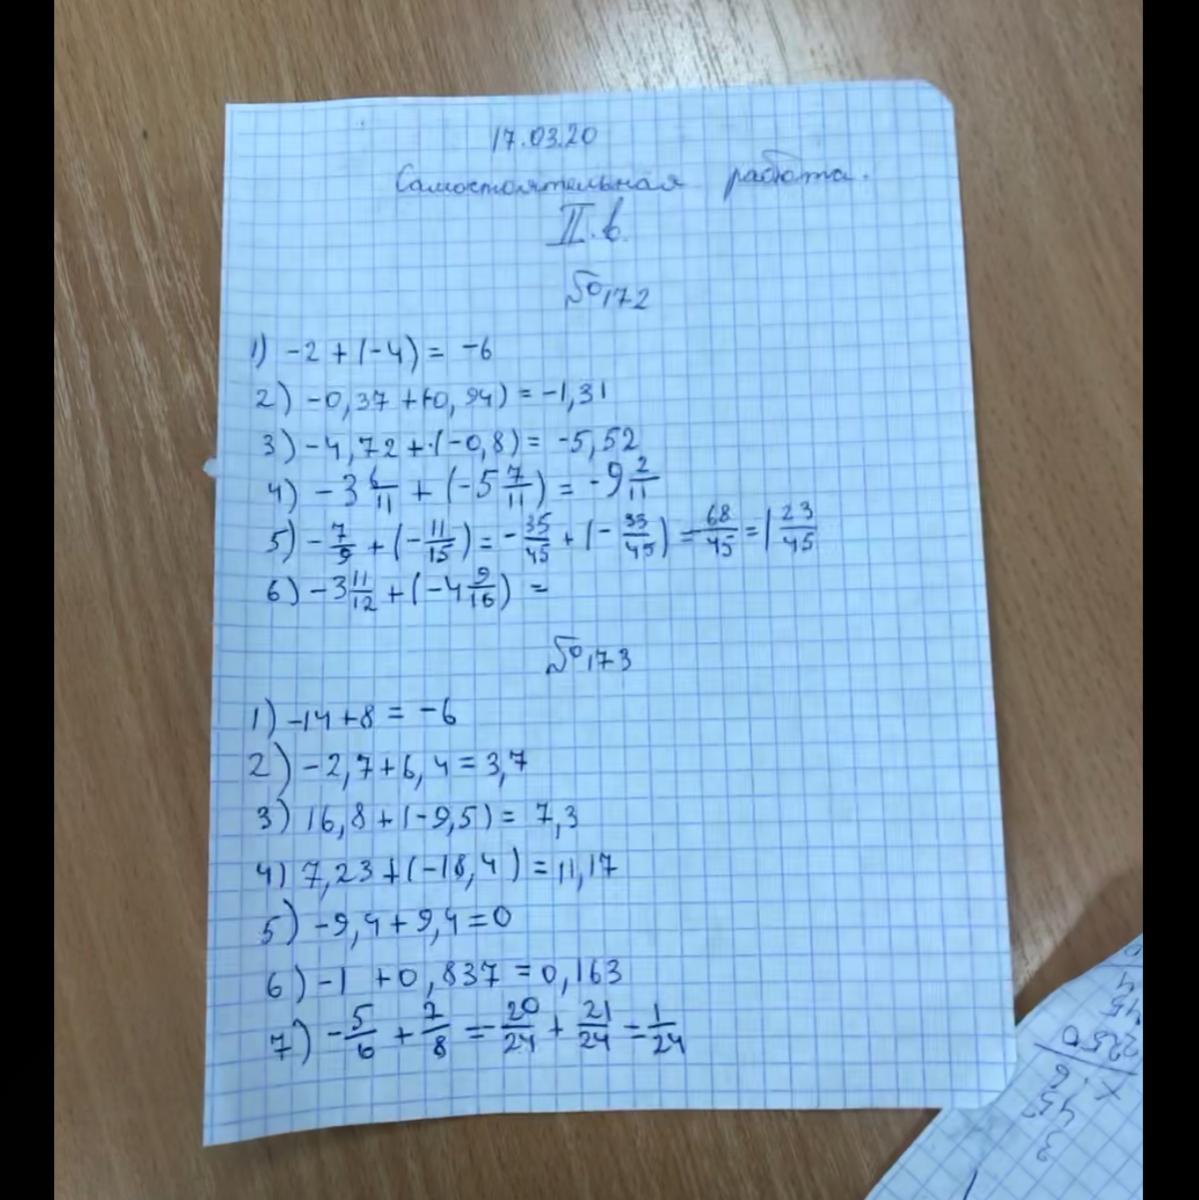 17.03.20
Самостоятельная работа.
II.в.
№172
1) -2 + (-4) = -6
2) -0,37 + (-0,94) = -1,31
3) -4,72 + (-0,8) = -5,52
4) -3 6/11 + (-5 7/11) = -9 2/11
5) -7/9 + (-11/15) = -35/45 + (-33/45) = -68/45 = 1 23/45
6) -3 11/12 + (-4 9/16) =
№173
1) -14+8 = -6
2) -2,7+6,4 = 3,7
3) 16,8 + (-9,5) = 7,3
4) 7,23 + (-18,4) = 11,17
5) -9,4 + 9,4 = 0
6) -1 + 0,837 = 0,163
7) -5/6 + 7/8 = -20/24 + 21/24 = 1/24
3
45
× 6
2250
45